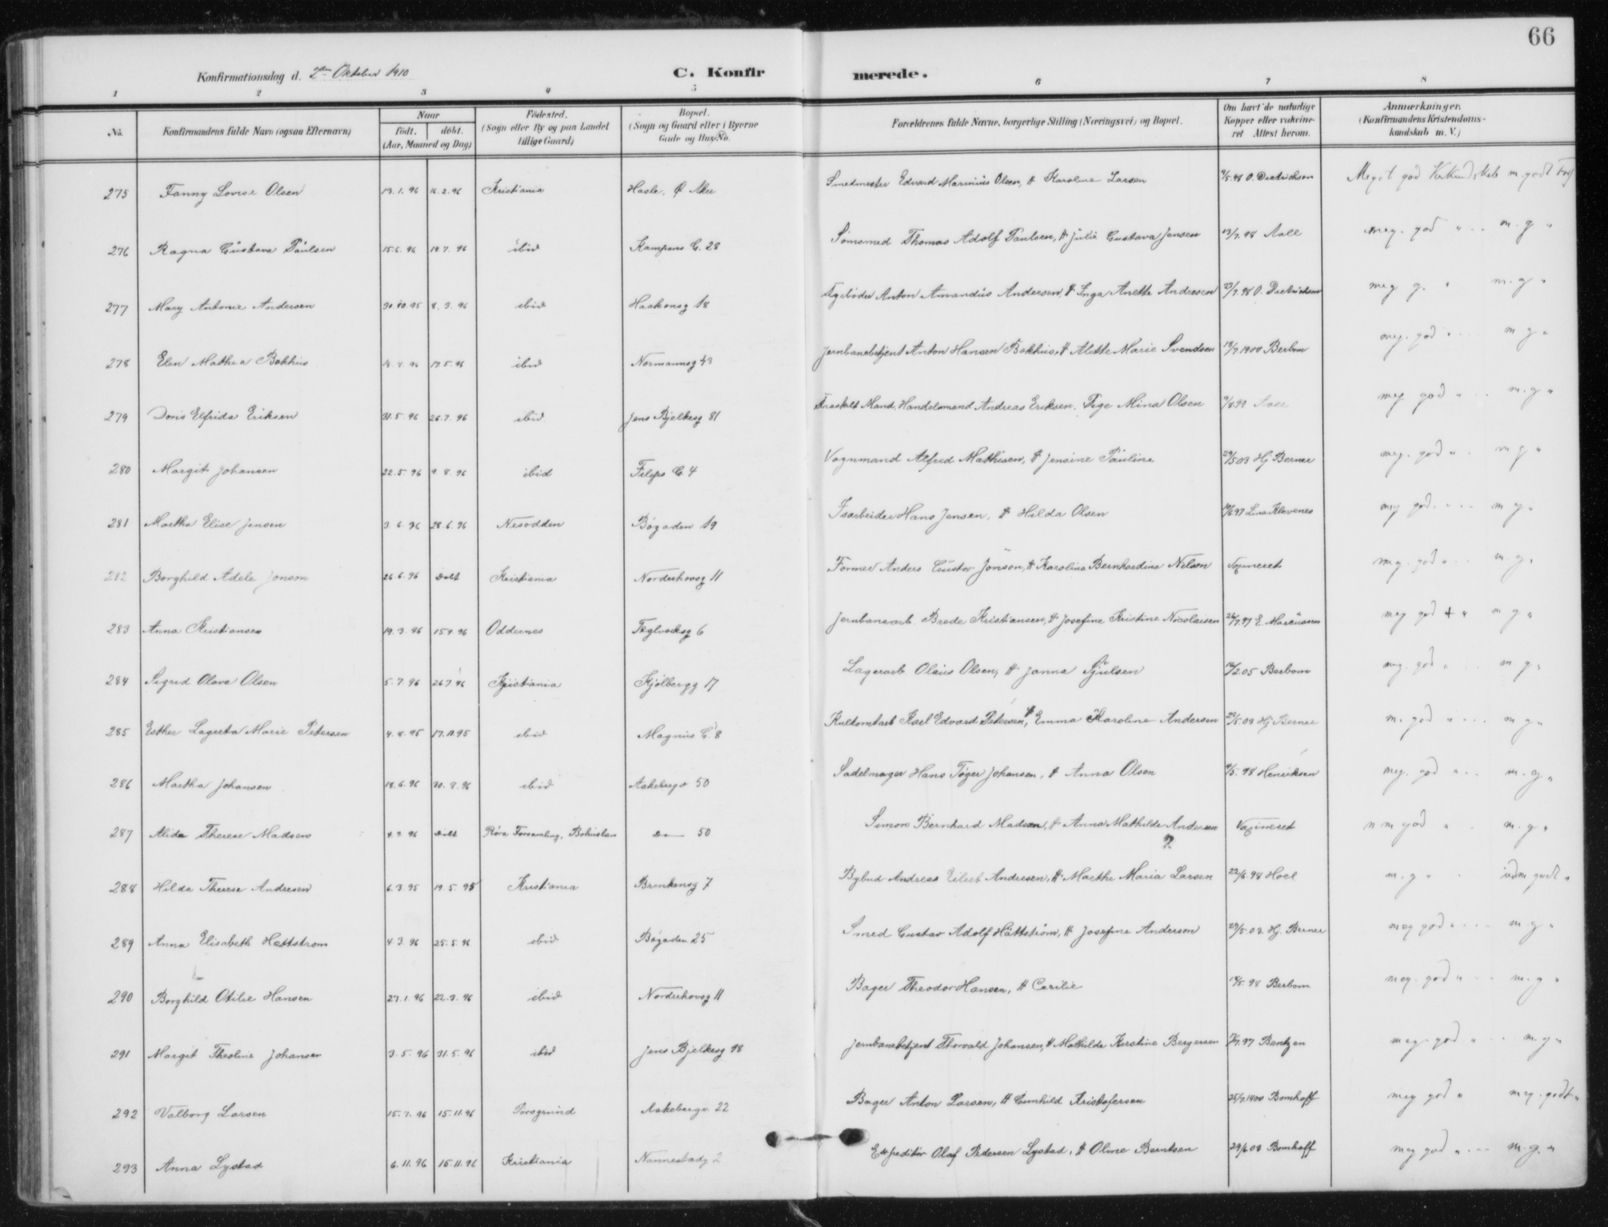 66
Konfirmationsdag d. 2den Oktober 1910
C. Konfirmerede.
1 2 3 4 5 6 7 8
No. Konfirmandens fulde Navn (ogsaa Efternavn) Naar født. døbt. (Aar, Maaned og Dag) Fødested. (Sogn eller By og paa Landet tillige Gaard) Bopæl. (Sogn og Gaard eller i Byerne Gade og Hus-No. Forældrenes fulde Navne, borgerlige Stilling (Næringsvei) og Bopæl. Om havt de naturlige Kopper eller vakcineret Attest herom. Anmærkninger. (Konfirmandens Kristendomskundskab m. V.)
275 Fanny Lovise Olsen 19.1.96 16.2.96 Kristiania Hasle, Ø Aker Smedmester Edvard Marinius Olsen, & Karoline Larsen O. Diedrichson Meget god Kundskab m. godt
276 Ragna Gustava Paulsen 15.6.96 19.7.96 ibid Kampens G. 28 Sömsmed Thomas Adolf Paulsen, & Julie Gustava Jensen 13/7.98 Aall meg. god " m. g "
277 Mary Antonie Andersen 30.10.95 8.3.96 ibid Haakonsg 18 Anton Amandus Andersen, & Inga Anette Andersen 23/7.98 O. Diedrichson meg g. " m. g "
278 Elen Mathea Bakkus 17.5.96 ibid Normannsg 43 Jernbanebetjent Anton Hansen Bakkus, & Alette Marie Svendsen 13/7 1900 Berbom meg. god " m g "
279 Doris Elfrida Eriksen 31.5.96 26.7.96 ibid Jens Bjelkesg 81 Fraskilt Mand, Handelsmand Andreas Eriksen, Pige Mina Olsen Aall meg god " m. g "
280 Margit Johansen 22.5.96 9.8.96 ibid Filips G. 4 Vognmand Alfred Mathisen, & Jensine Pauline Hj Berner meg. god " m g "
281 Martha Elise Jensen 3.6.96 28.6.96 Nesodden Bøgaden 19 Isarbeider Hans Jensen, & Hilda Olsen Lina Klevenes meg god m g.
282 Borghild Adele Jonson 26.6.96 Kristiania Nordrehovsg 11 Former Anders Gustav Jonson, & Karolina Bernhardina Nelson Vaxineret meg. god " m. g.
283 Anna Kristiansen 19.3.96 15.4.96 Oddernes Teglverksg 6 Jernbanearb. Brede Kristiansen, & Josefine Kristine Nicolaisen meg god + " m g "
284 Sigrid Olava Olsen 5.7.96 26.7.96 Kristiania Kjølbergg 17 Lagerarb Olaus Olsen, & Janna Sjulsen Berbom meg. god m. g.
285 Esther Lagerta Marie Petersen 4.8.95 17.11.95 ibid Magnus G. 8 Kultomtarb Karl Edvard Petersen, & Emma Karoline Andersen Hj Berner m. god " m g "
286 Martha Johansen 18.6.96 30.8.96 ibid Aakebergv 50 Sadelmager Hans Tøger Johansen, & Anna Olsen Henriksen meg. god " m. g "
287 Alida Therese Madsen 4.9.96 Røra Forsamling, Bohuslen Do 50 Simon Bernhard Madsen, & Anna Mathilde Andersen ? Vaxineret god " m. g "
288 Hilda Therese Andresen 6.3.95 19.5.95 Kristiania Brinkensg 7 Bybud Andreas Eilert Andresen, & Marthe Maria Larsen 22/6.98 Hoel m. g " udm. godt "
289 Anna Elisabeth Hettstrom 4.3.96 25.5.96 ibid Bøgaden 25 Smed Gustav Adolf Hättström, & Josefine Anderson Hj. Berner meg god " m. g "
290 Borghild Otilie Hansen 27.1.96 22.3.96 ibid Nordrehovsg 11 Bager Theodor Hansen, & Cecilie Berbom meg. god " m. g "
291 Margit Theoline Johansen 3.5.96 31.5.96 ibid Jens Bjelkesg 98 Jernbanebetjent Thorvald Johansen, & Mathilde Kirstine Bergersen Bentzen meg. god " m. g "
292 Valborg Larsen 15.7.96 15.11.96 Porsgrund Aakebergv. 22 Bager Anton Larsen, & Gunhild Kristofersen Bomhoff meg god " meg. godt "
293 Anna Lystad 6.11.96 15.11.96 Kristiania Nannestadg 2 Expeditör Olaf Pedersen Lystad, & Oline Berntsen Bomhoff meg god " m. g. "